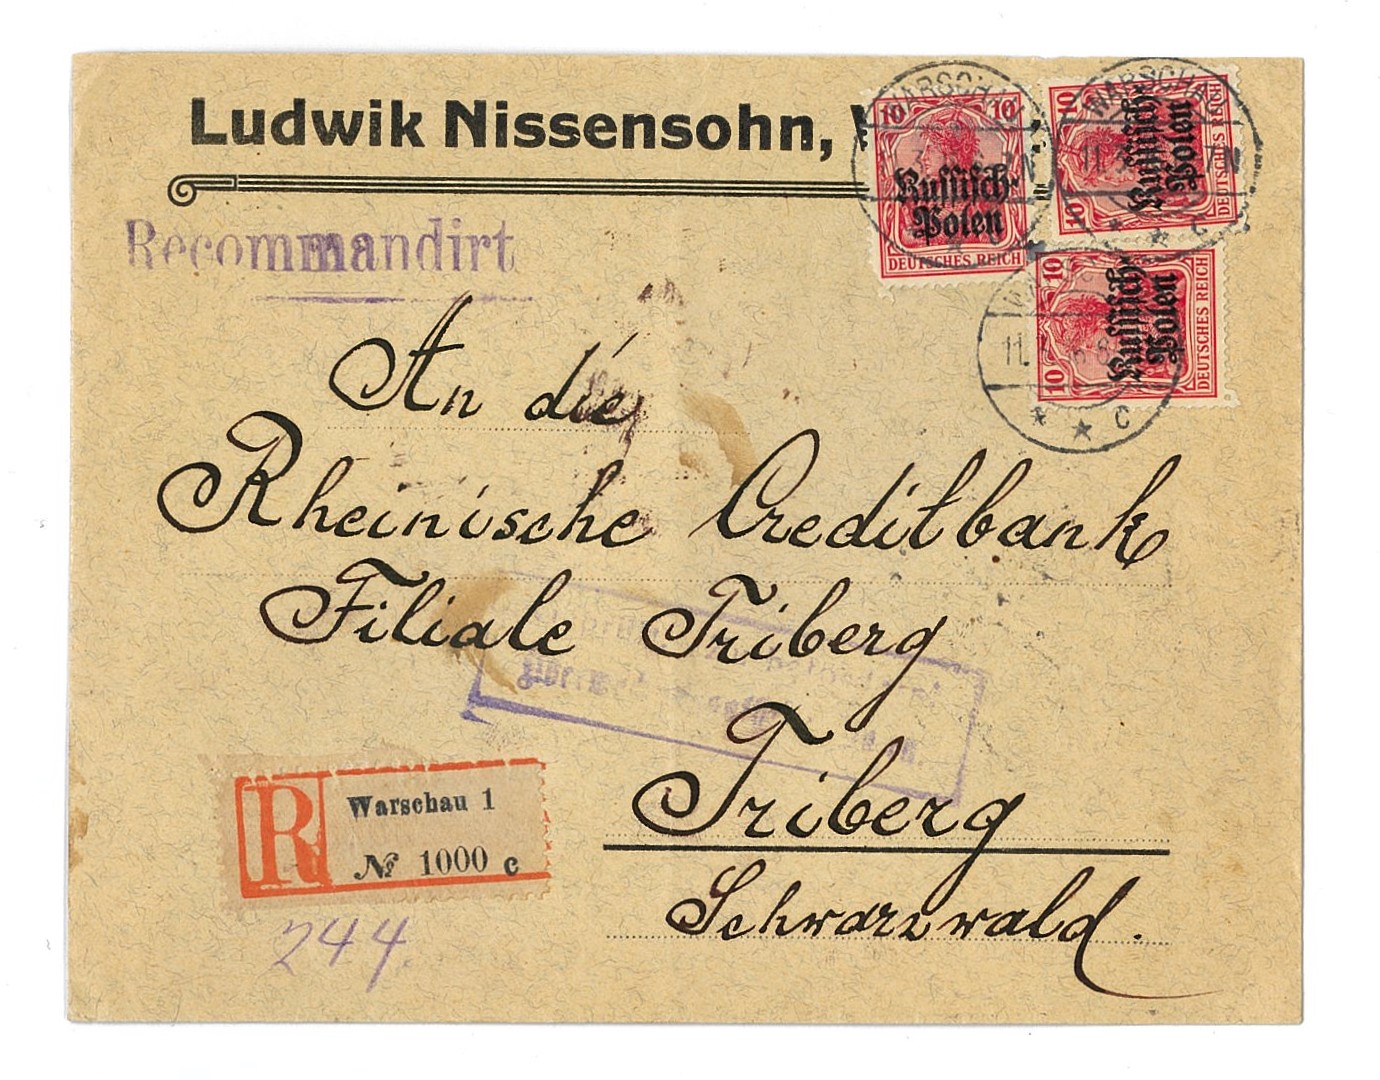 Ludwik Nissensohn,
WARSCH
10 10
Russisch-
Polen
DEUTSCHES REICH
WARSCHAU
10 10
Russisch-
Polen
DEUTSCHES REICH
C
10 10
Russisch-
Polen
DEUTSCHES REICH
11.
* * C
Recommandirt
An die
Rheinische Creditbank
Filiale Triberg
Triberg
Schwarzwald.
R
Warschau 1
№ 1000 c
244.